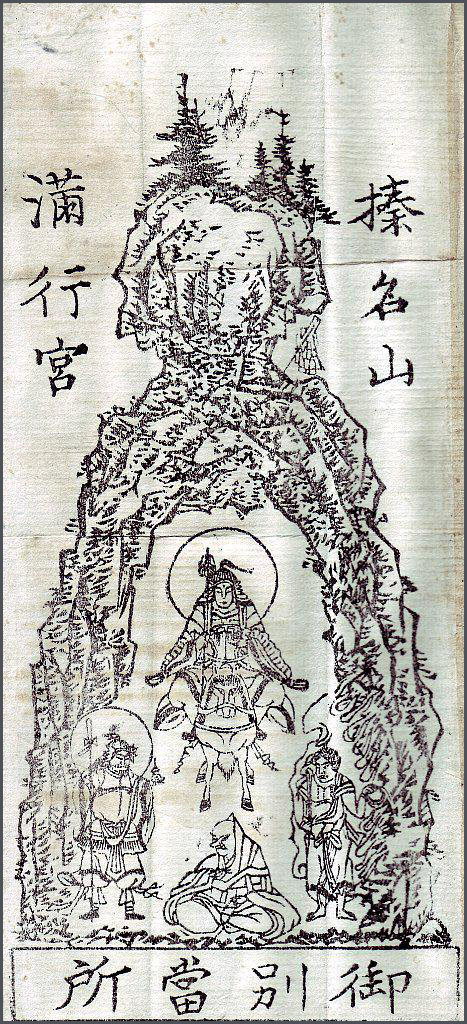 榛名山
滿行宮
御別當所